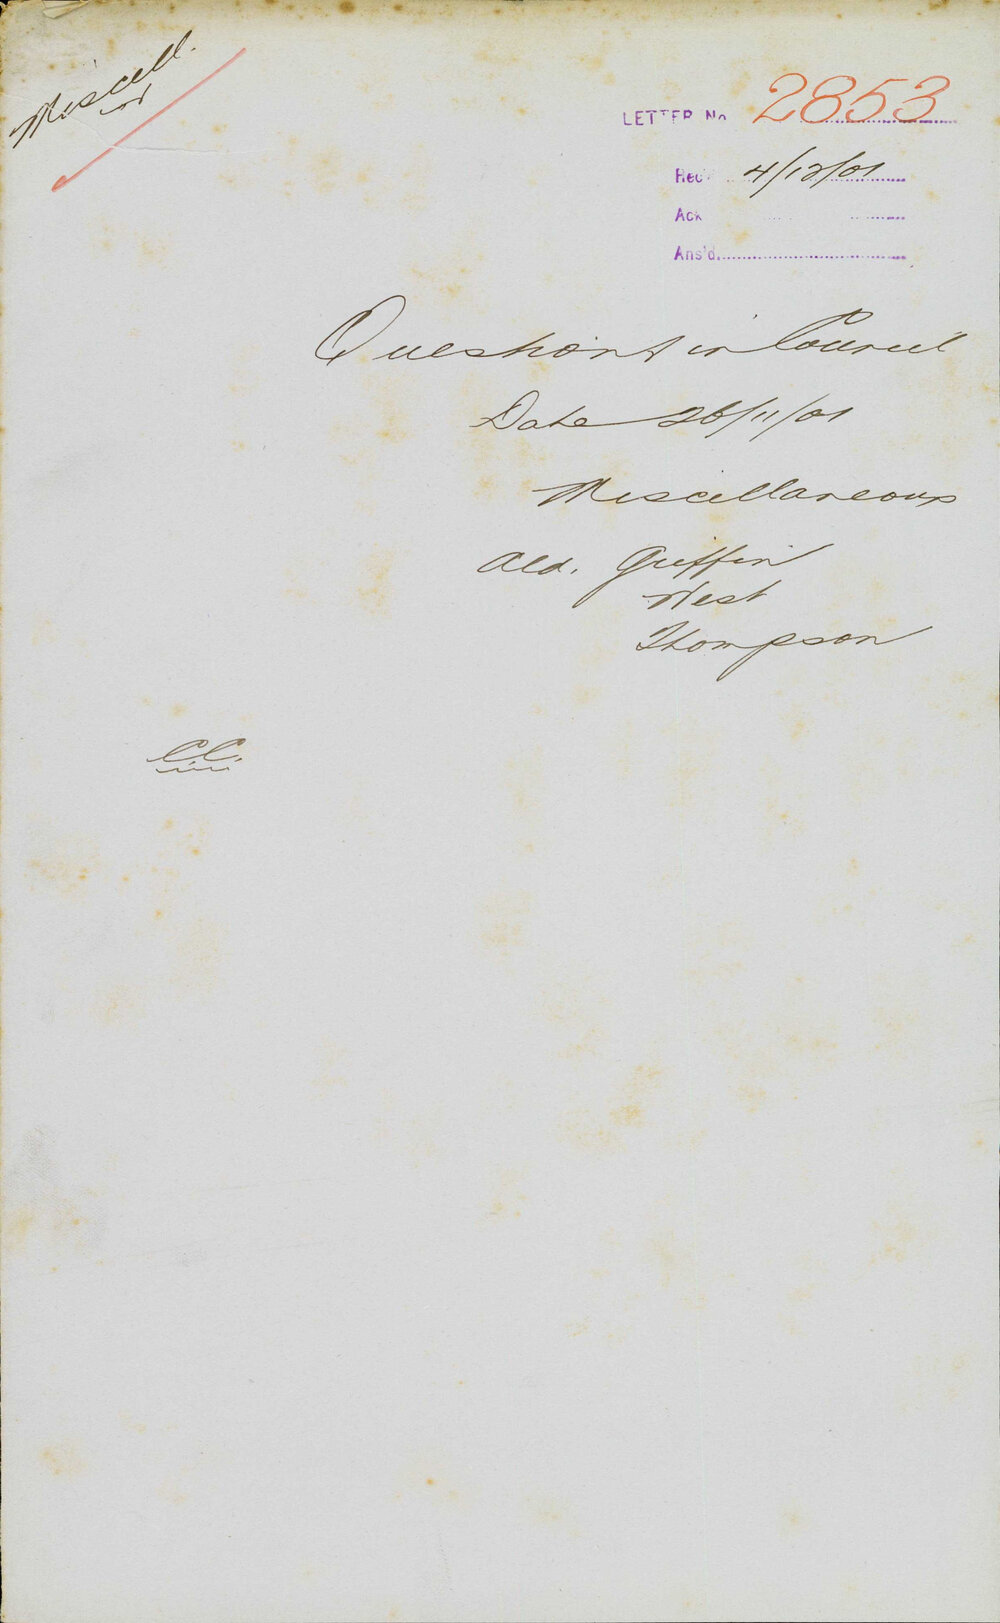 Miscell.
LETTER No 2853
Rec. 4/12/01
Ack
Ans'd.
Questions in Council
Date 26/11/01
Miscellaneous
Ald. Griffin
West
Thompson
C.C.